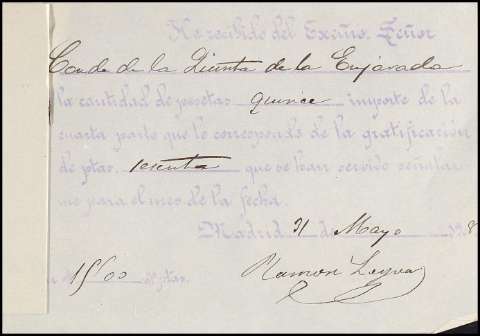 He recibido del Excmo. Señor
Conde de la Quinta de la Enjarada
la cantidad de pesetas quince importe de la
cuarta parte que le corresponde de la gratificación
de ptas. sesenta que se han servido señalar
me para el mes de la fecha.
Madrid 31 de Mayo 8
15/00 ptas.
Ramon Leyva